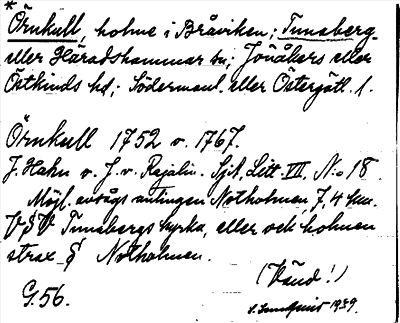 *
Örnkull, holme i Bråviken; Tunaberg
eller Häradshammar sn; Jönåkers eller
Östkinds hd; Södermanl. eller Östergötl. l.
Örnkull 1752 v. 1767.
J. Hahn v. J. v. Rajalin. Sjk. Litt. VII, No 18.
Möjl. avsågs antingen Notholmen, 7,4 km.
VSV Tunabergs kyrka, eller ock holmen
strax S Notholmen.
(Vänd!)
G. 56.
S. Lundquist 1939.